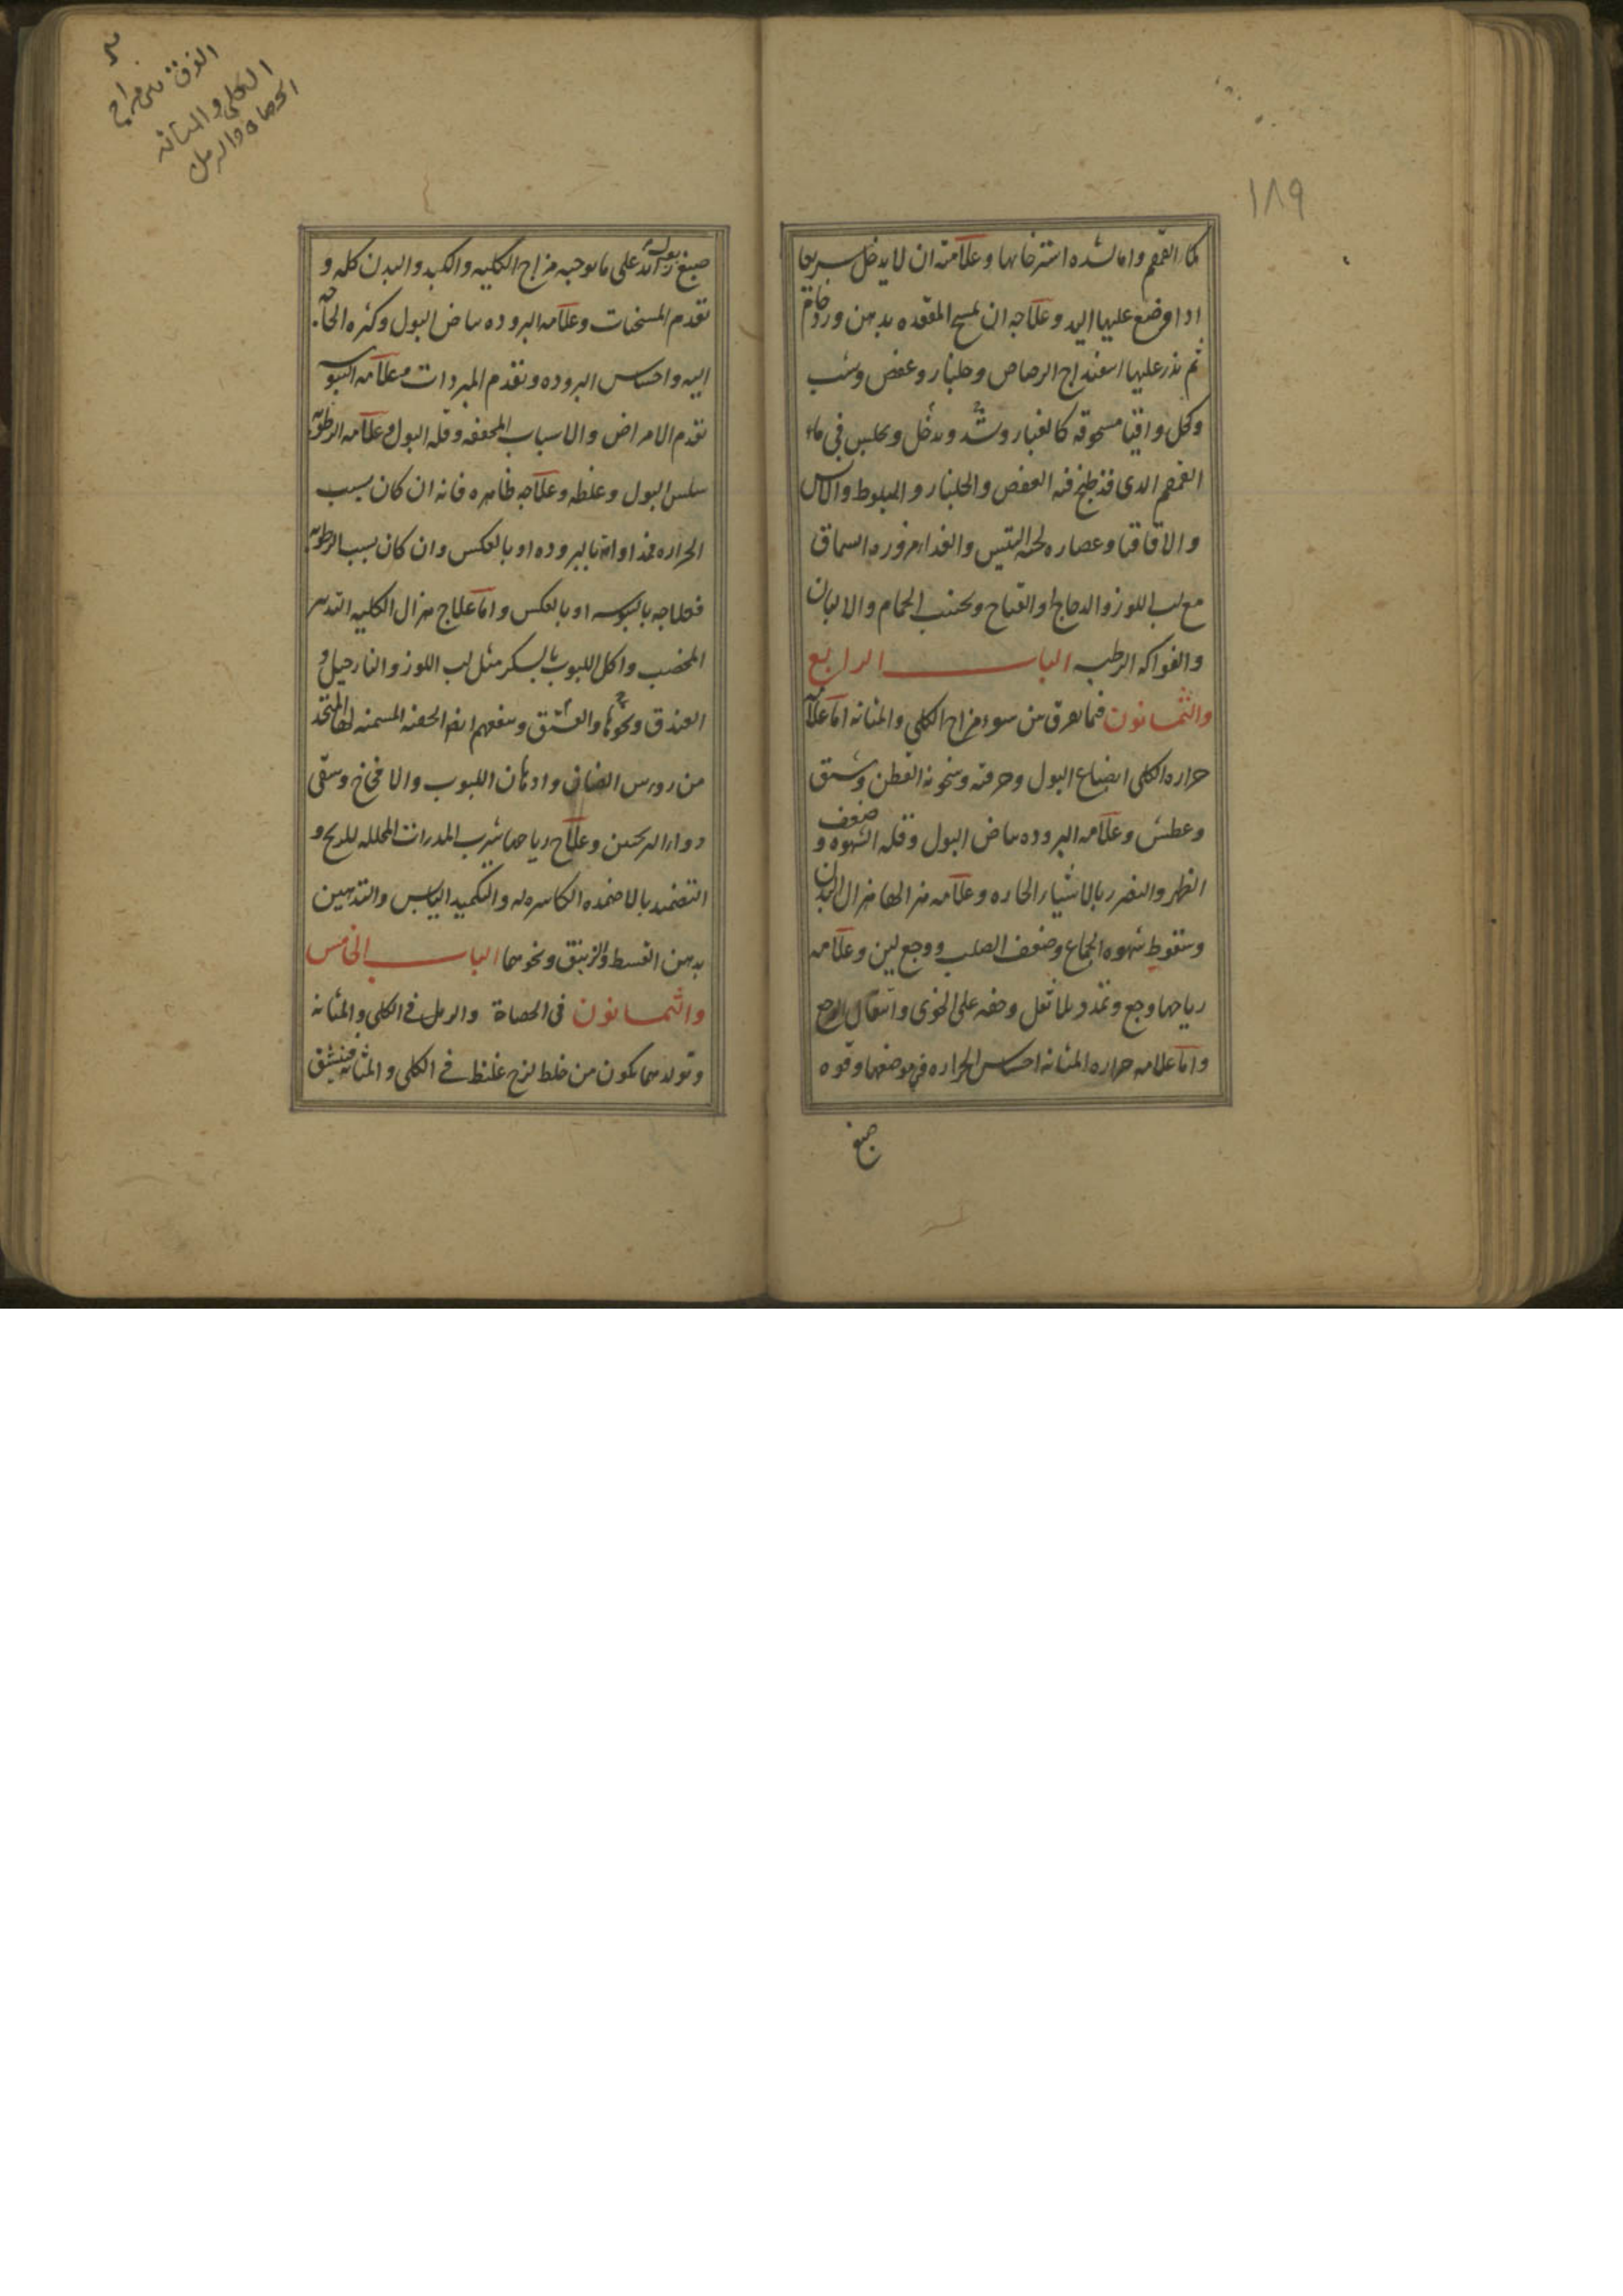 ١٨٩
القمقم واما لشده استرخائها وعلامته ان لا يدخل سريعا
اذا وضع عليها اليد وعلاجه ان يمسح المقعده بدهن ورد خام
ثم يذر عليها اسفيداج الرصاص وجلنار وعفص وشب
وكحل واقيا مسحوقه كالغبار وتشد وتدخل ويجلس في ماء
القمقم الذي قد طبخ فيه العفص والجلنار والبلوط والاس
والاقاقيا وعصاره لحيه التيس والغدا مزوره السماق
مع لب اللوز والدجاج او القباج ويجتنب الحمام والالبان
والفواكه الرطبه الباب الرابع
والثمانون فيما يعرق من سوء مزاج الكلي والمثانه اما علامه
حراره الكلي انصباغ البول وحرقته وسخونه القطن وشبق
وعطش وعلامه البروده بياض البول وقله الشهوه و ضعف
الظهر والتضرر بالاشياء الحاره وعلامه هزالها هزال البدن
وسقوط شهوه الجماع وضعف الصلب ووجع لين وعلامه
رياحها وجع وتمدد بلا ثقل وخفه على الخوى وانتقال الوجع
واما علامه حراره المثانه احساس الحراره في موضعها وقوه
صبغ
الفرق بين مزاج
الكلي والمثانه
الحصاه والرمل
صبغ بوله زائد على ما يوجبه مزاج الكليه والكبد والبدن كله و
تقدم المسخنات وعلامه البروده بياض البول وكثره الحاجه
اليه واحساس البروده وتقدم المبردات وعلامه اليبوسه
تقدم الامراض والاسباب المجففه وقله البول وعلامه الرطوبه
سلس البول وغلظه وعلاجه ظاهره فانه ان كان بسبب
الحراره فمداواته بالبروده او بالعكس وان كان بسبب الرطوبه
فعلاجه باليبوسه او بالعكس واما علاج هزال الكليه التدبير
المخصب واكل اللبوب بالسكر مثل لب اللوز والنارجيل و
الفندق ونحوها والفستق وينفعهم ايضا الحقنه المسمنه لها المتخذ
من روس الضان وادهان اللبوب والافخاخ وسقى
دواء الترنجبين وعلاج رياحها شرب المدرات المحلله للريح و
التضميد بالاضمده الكاسره له والتكميد اليابس والتدهين
بدهن القسط والزنبق ونحوهما الباب الخامس
والثمانون في الحصاة والرمل في الكلي والمثانه
وتولدهما يكون من خلط لزج غليظ في الكلي والمثانه